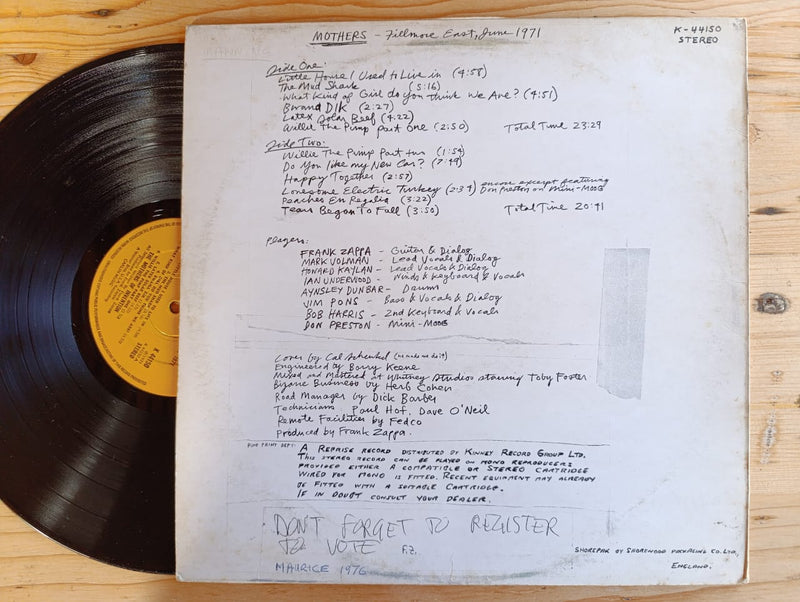 MOTHERS - Fillmore East, June 1971
K-44150
STEREO
Side One:
Little House I Used to Live in (4:58)
The Mud Shark (5:16)
What Kind of Girl do you think We Are? (4:51)
Bwana Dik (2:27)
Latex Solar Beef (4:22)
Willie The Pimp Part One (2:50) Total Time 23:29
Side Two:
Willie The Pimp Part two (1:54)
Do You like my New Car? (7:49)
Happy Together (2:57)
Lonesome Electric Turkey (2:34) encore excerpt featuring
Don Preston on Mini-MOOG
Peaches En Regalia (3:22)
Tears Began To Fall (3:50) Total Time 20:41
Players:
FRANK ZAPPA - Guitar & Dialog
MARK VOLMAN - Lead Vocals & Dialog
HOWARD KAYLAN - Lead Vocals & Dialog
IAN UNDERWOOD - Winds & Keyboard & Vocals
AYNSLEY DUNBAR - Drums
JIM PONS - Bass & Vocals & Dialog
BOB HARRIS - 2nd Keyboard & Vocals
DON PRESTON - Mini-MOOG
Cover by Cal Schenkel (he made me do it)
Engineered by Barry Keene
Mixed and Mastered at Whitney Studios starring Toby Foster
Bizarre Business by Herb Cohen
Road Manager by Dick Barber
Technicians Paul Hof, Dave O'Neil
Remote Facilities by Fedco
Produced by Frank Zappa.
FINE PRINT DEPT: A REPRISE RECORD DISTRIBUTED BY KINNEY RECORD GROUP LTD.
THIS STEREO RECORD CAN BE PLAYED ON MONO REPRODUCERS
PROVIDED EITHER A COMPATIBLE OR STEREO CARTRIDGE
WIRED FOR MONO IS FITTED. RECENT EQUIPMENT MAY ALREADY
BE FITTED WITH A SUITABLE CARTRIDGE.
IF IN DOUBT CONSULT YOUR DEALER.
DON'T FORGET TO REGISTER
TO VOTE F.Z.
MAURICE 1976
SHOREPAK BY SHOREWOOD PACKAGING CO. LTD,
ENGLAND.
K 44150
STEREO